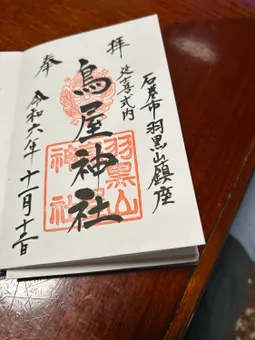 奉
拝
延喜式内
石巻市羽黒山鎮座
鳥屋神社
羽黒山
神社
令和六年十一月十二日